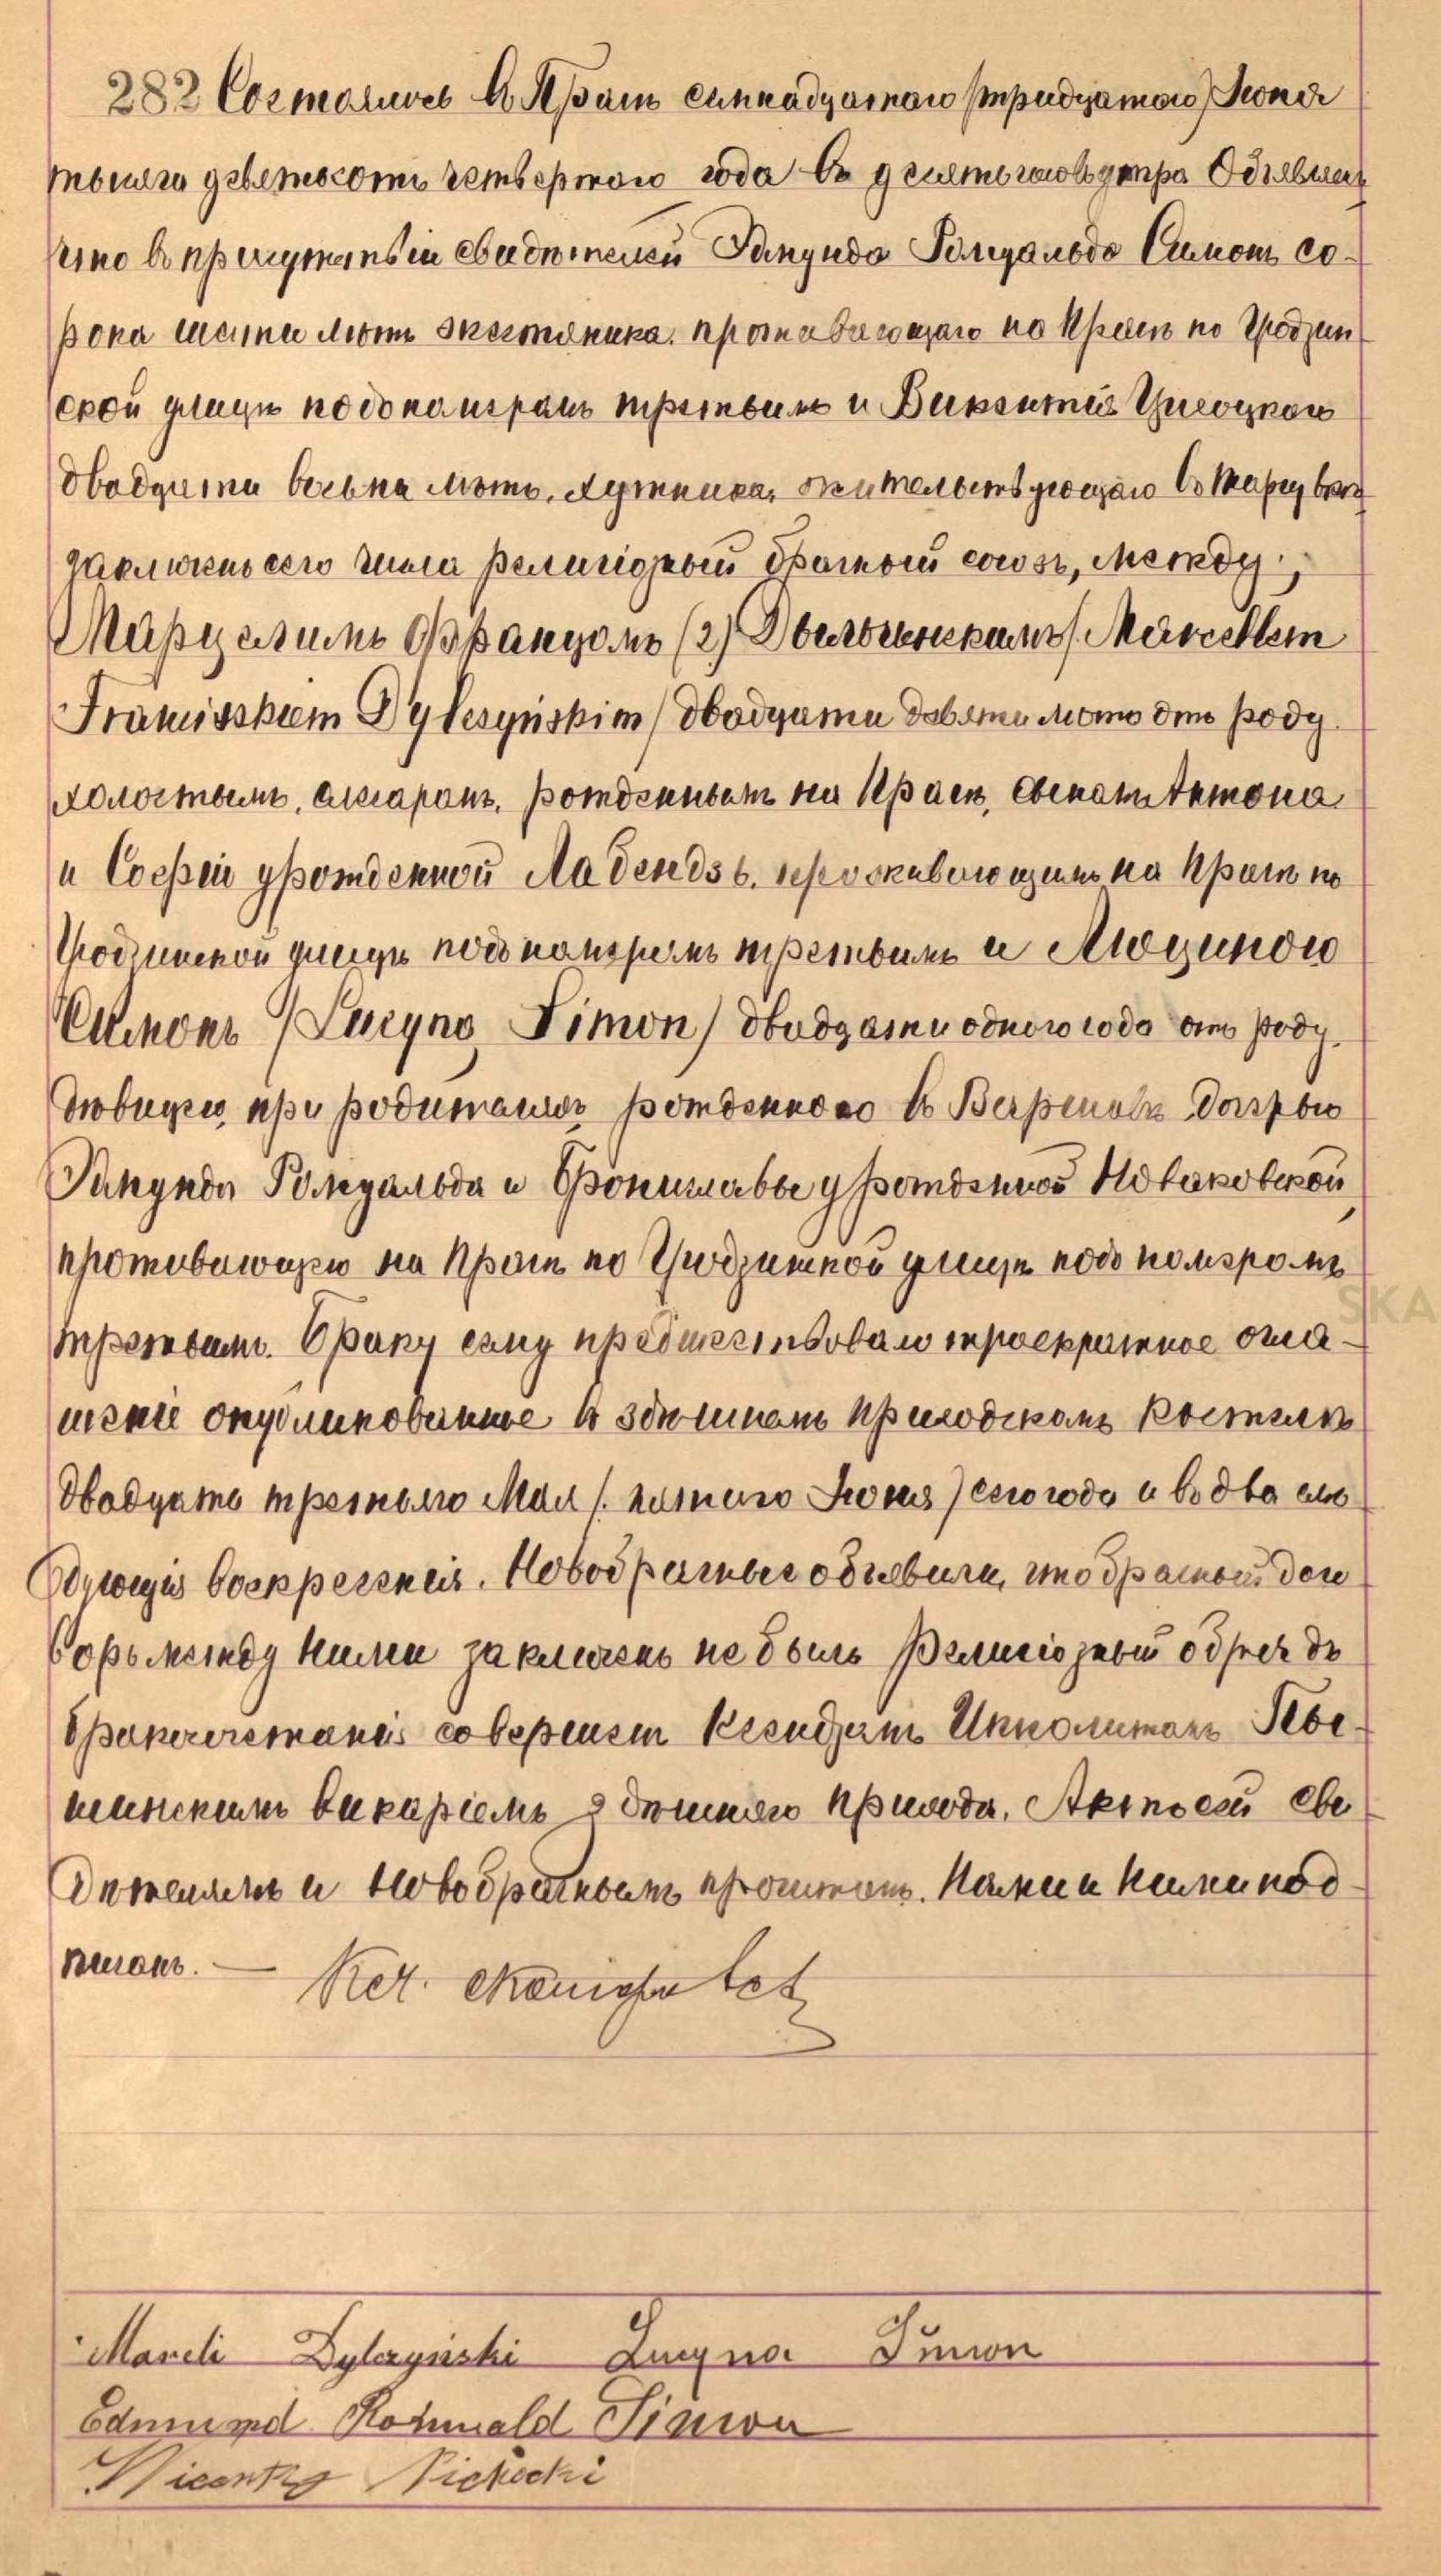 282 Состоялось въ Прагѣ семнадцатаго (тридцатаго) Іюня
тысяча девятьсотъ четвертаго года въ десять часовъ утра Объявляемъ
что въ присутствіи свидѣтелей Ромуальда Симонъ со-
рока шести лѣтъ проживающаго на Прагѣ по
ской улицѣ подъ номеромъ третьимъ и Викентія
двадцати восьми лѣтъ, жительствующаго въ
заключенъ сего числа религіозный брачный союзъ, между:
Марцелимъ Францомъ (2) Дыльчинскимъ / Marcellem
Franciszkiem Dylczyńskim / двадцати девяти лѣтъ отъ роду
холостымъ, слесаремъ, рожденнымъ на Прагѣ, сыномъ Антона
и Софіи урожденной проживающимъ на Прагѣ по
улицѣ подъ номеромъ третьимъ и Люциною
Симонъ / Lucyną Simon / двадцати одного года отъ роду,
дѣвицею, при родителяхъ, рожденною въ дочерью
Ромуальда и Брониславы урожденной Новаковской
проживающею на Прагѣ по улицѣ подъ номеромъ
третьимъ. Браку сему предшествовало троекратное огла-
шеніе опубликованное въ здѣшнемъ приходскомъ костелѣ
двадцать третьяго Мая / пятаго Іюня / сего года и въ два слѣ
дующія воскресенія. Новобрачные объявили, что брачный дого
воръ между ними заключенъ не былъ Религіозный обрядъ
бракосочетанія совершенъ Ксендзомъ Ипполитомъ
викаріемъ здѣшняго прихода. Актъ сей сви
дѣтелямъ и новобрачнымъ прочитанъ. Нами и ними под
писанъ. —
Marceli Dylczyński Lucyna Simon
Edmund Romuald Simon
Wicenty
SKA